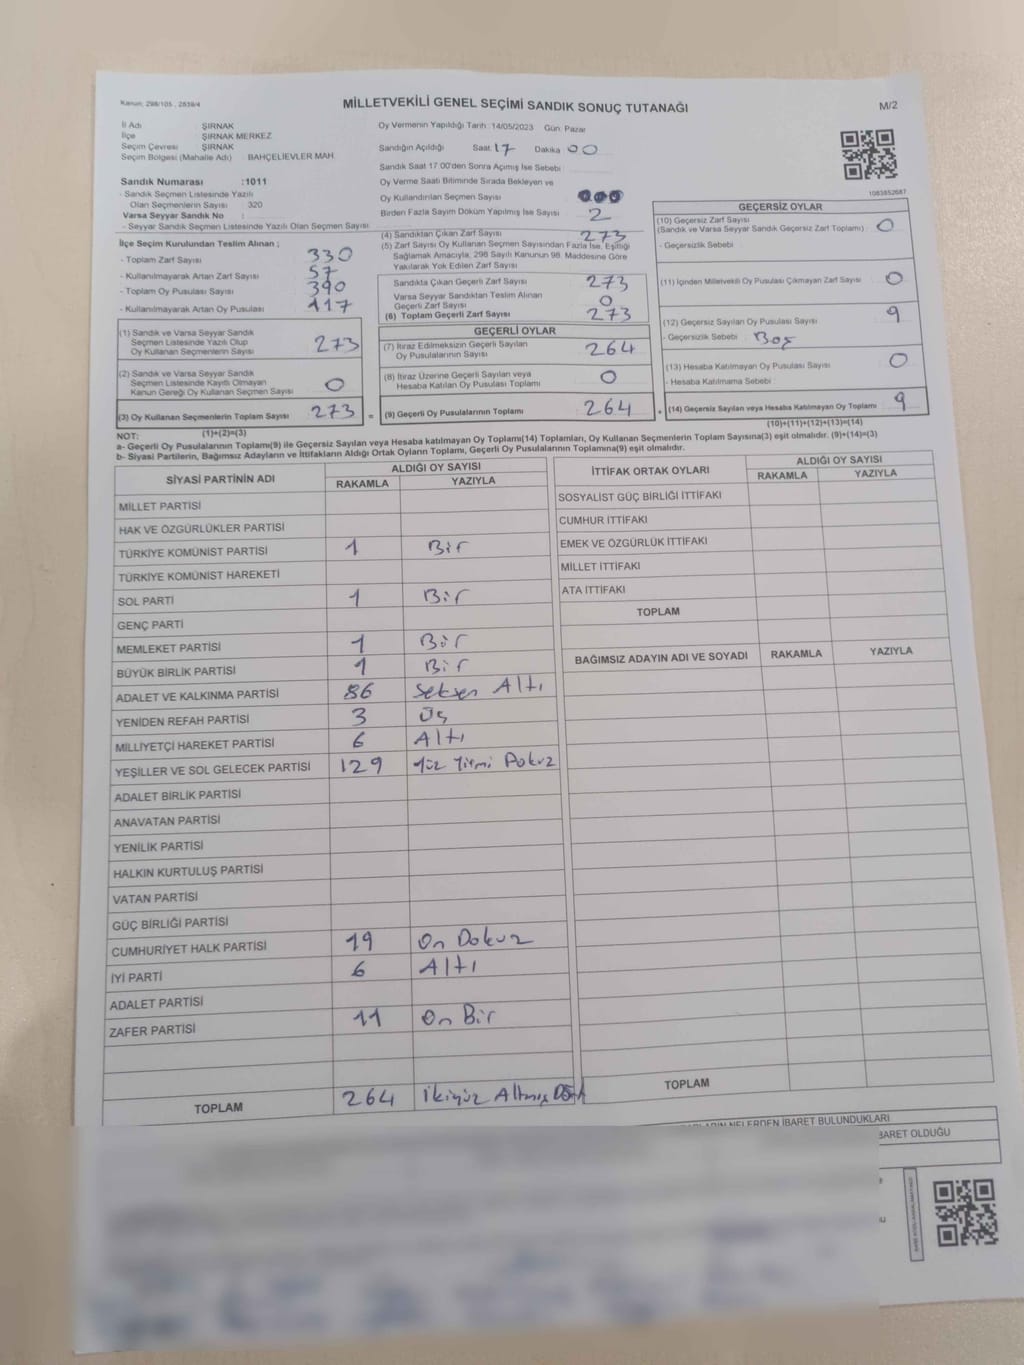 Kanun: 298/105 , 2839/4
MİLLETVEKİLİ GENEL SEÇİMİ SANDIK SONUÇ TUTANAĞI
M/2
İl Adı ŞIRNAK
İlçe ŞIRNAK MERKEZ
Seçim Çevresi ŞIRNAK
Seçim Bölgesi (Mahalle Adı) BAHÇELİEVLER MAH.
Sandık Numarası :1011
- Sandık Seçmen Listesinde Yazılı
Olan Seçmenlerin Sayısı : 320
Varsa Seyyar Sandık No :
- Seyyar Sandık Seçmen Listesinde Yazılı Olan Seçmen Sayısı:
İlçe Seçim Kurulundan Teslim Alınan ;
- Toplam Zarf Sayısı 330
- Kullanılmayarak Artan Zarf Sayısı 57
- Toplam Oy Pusulası Sayısı 390
- Kullanılmayarak Artan Oy Pusulası 117
(1) Sandık ve Varsa Seyyar Sandık
Seçmen Listesinde Yazılı Olup
Oy Kullanan Seçmenlerin Sayısı 273
(2) Sandık ve Varsa Seyyar Sandık
Seçmen Listesinde Kayıtlı Olmayan
Kanun Gereği Oy Kullanan Seçmen Sayısı 0
(3) Oy Kullanan Seçmenlerin Toplam Sayısı 273 =
(1)+(2)=(3)
Oy Vermenin Yapıldığı Tarih : 14/05/2023 Gün: Pazar
Sandığın Açıldığı Saat: 17 Dakika : 00
Sandık Saat 17.00'den Sonra Açılmış İse Sebebi :
Oy Verme Saati Bitiminde Sırada Bekleyen ve
Oy Kullandırılan Seçmen Sayısı
Birden Fazla Sayım Döküm Yapılmış İse Sayısı 2
(4) Sandıktan Çıkan Zarf Sayısı 273
(5) Zarf Sayısı Oy Kullanan Seçmen Sayısından Fazla İse, Eşitliği
Sağlamak Amacıyla, 298 Sayılı Kanunun 98. Maddesine Göre
Yakılarak Yok Edilen Zarf Sayısı
Sandıkta Çıkan Geçerli Zarf Sayısı 273
Varsa Seyyar Sandıktan Teslim Alınan
Geçerli Zarf Sayısı 0
(6) Toplam Geçerli Zarf Sayısı 273
GEÇERLİ OYLAR
(7) İtiraz Edilmeksizin Geçerli Sayılan
Oy Pusulalarının Sayısı 264
(8) İtiraz Üzerine Geçerli Sayılan veya
Hesaba Katılan Oy Pusulası Toplamı 0
(9) Geçerli Oy Pusulalarının Toplamı 264 +
1083852687
GEÇERSİZ OYLAR
(10) Geçersiz Zarf Sayısı
(Sandık ve Varsa Seyyar Sandık Geçersiz Zarf Toplamı) : 0
- Geçersizlik Sebebi :
(11) İçinden Milletvekili Oy Pusulası Çıkmayan Zarf Sayısı 0
(12) Geçersiz Sayılan Oy Pusulası Sayısı 9
- Geçersizlik Sebebi : Boş
(13) Hesaba Katılmayan Oy Pusulası Sayısı 0
- Hesaba Katılmama Sebebi :
(14) Geçersiz Sayılan veya Hesaba Katılmayan Oy Toplamı 9
(10)+(11)+(12)+(13)=(14)
NOT:
a- Geçerli Oy Pusulalarının Toplamı(9) ile Geçersiz Sayılan veya Hesaba katılmayan Oy Toplamı(14) Toplamları, Oy Kullanan Seçmenlerin Toplam Sayısına(3) eşit olmalıdır. (9)+(14)=(3)
b- Siyasi Partilerin, Bağımsız Adayların ve İttifakların Aldığı Ortak Oyların Toplamı, Geçerli Oy Pusulalarının Toplamına(9) eşit olmalıdır.
SİYASİ PARTİNİN ADI ALDIĞI OY SAYISI
RAKAMLA YAZIYLA
MİLLET PARTİSİ
HAK VE ÖZGÜRLÜKLER PARTİSİ
TÜRKİYE KOMÜNİST PARTİSİ 1 Bir
TÜRKİYE KOMÜNİST HAREKETİ
SOL PARTİ 1 Bir
GENÇ PARTİ
MEMLEKET PARTİSİ 1 Bir
BÜYÜK BİRLİK PARTİSİ 1 Bir
ADALET VE KALKINMA PARTİSİ 86 Seksen Altı
YENİDEN REFAH PARTİSİ 3 Üç
MİLLİYETÇİ HAREKET PARTİSİ 6 Altı
YEŞİLLER VE SOL GELECEK PARTİSİ 129 Yüz Yirmi Dokuz
ADALET BİRLİK PARTİSİ
ANAVATAN PARTİSİ
YENİLİK PARTİSİ
HALKIN KURTULUŞ PARTİSİ
VATAN PARTİSİ
GÜÇ BİRLİĞİ PARTİSİ
CUMHURİYET HALK PARTİSİ 19 On Dokuz
İYİ PARTİ 6 Altı
ADALET PARTİSİ
ZAFER PARTİSİ 11 On Bir
TOPLAM 264 İkiyüz Altmış Dört
İTTİFAK ORTAK OYLARI ALDIĞI OY SAYISI
RAKAMLA YAZIYLA
SOSYALİST GÜÇ BİRLİĞİ İTTİFAKI
CUMHUR İTTİFAKI
EMEK VE ÖZGÜRLÜK İTTİFAKI
MİLLET İTTİFAKI
ATA İTTİFAKI
TOPLAM
BAĞIMSIZ ADAYIN ADI VE SOYADI RAKAMLA YAZIYLA
TOPLAM
NELERDEN İBARET BULUNDUKLARI
OLDUĞU